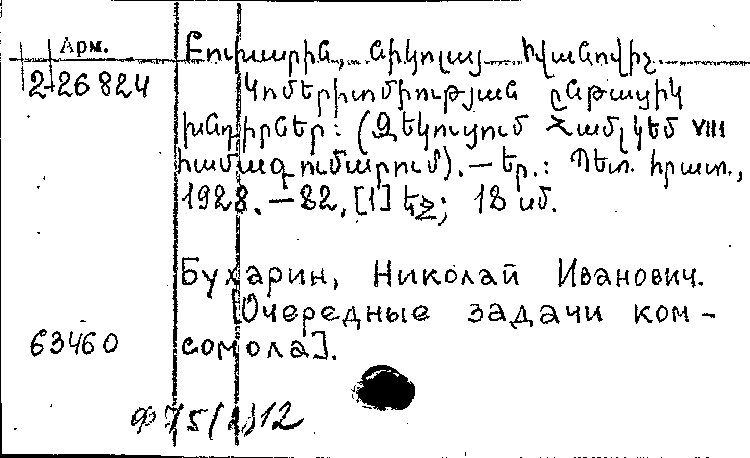 Арм.
2-26824
Բուխարին, Նիկոլայ Իվանովիչ.
Կոմերիտմիության ընթացիկ
խնդիրներ: (Զեկուցում Համլկեմ VIII
համագումարում). — Եր.: Պետ. հրատ.,
1928. — 82, [1] էջ; 18 սմ.
Бухарин, Николай Иванович.
[Очередные задачи ком-
сомола].
63460